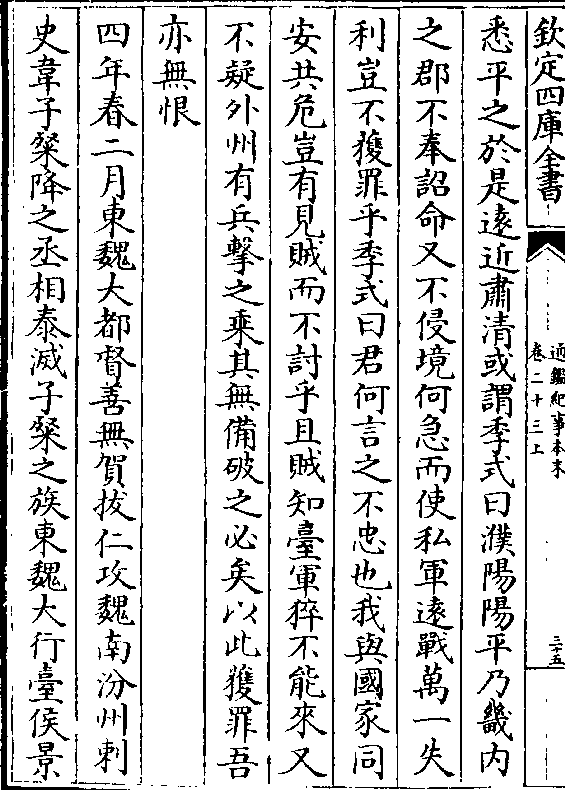 欽定四庫全書
通鑑紀事本末
卷二十三上
三十五
悉平之於是遠近肅清或謂季式曰濮陽陽平乃畿内
之郡不奉詔命又不侵境何急而使私軍遠戰萬一失
利豈不獲罪乎季式曰君何言之不忠也我與國家同
安共危豈有見賊而不討乎且賊知臺軍猝不能來又
不疑外州有兵擊之乘其無備破之必矣以此獲罪吾
亦無恨
四年春二月東魏大都督善無賀拔仁攻魏南汾州刺
史韋子粲降之丞相泰滅子粲之族東魏大行臺侯景